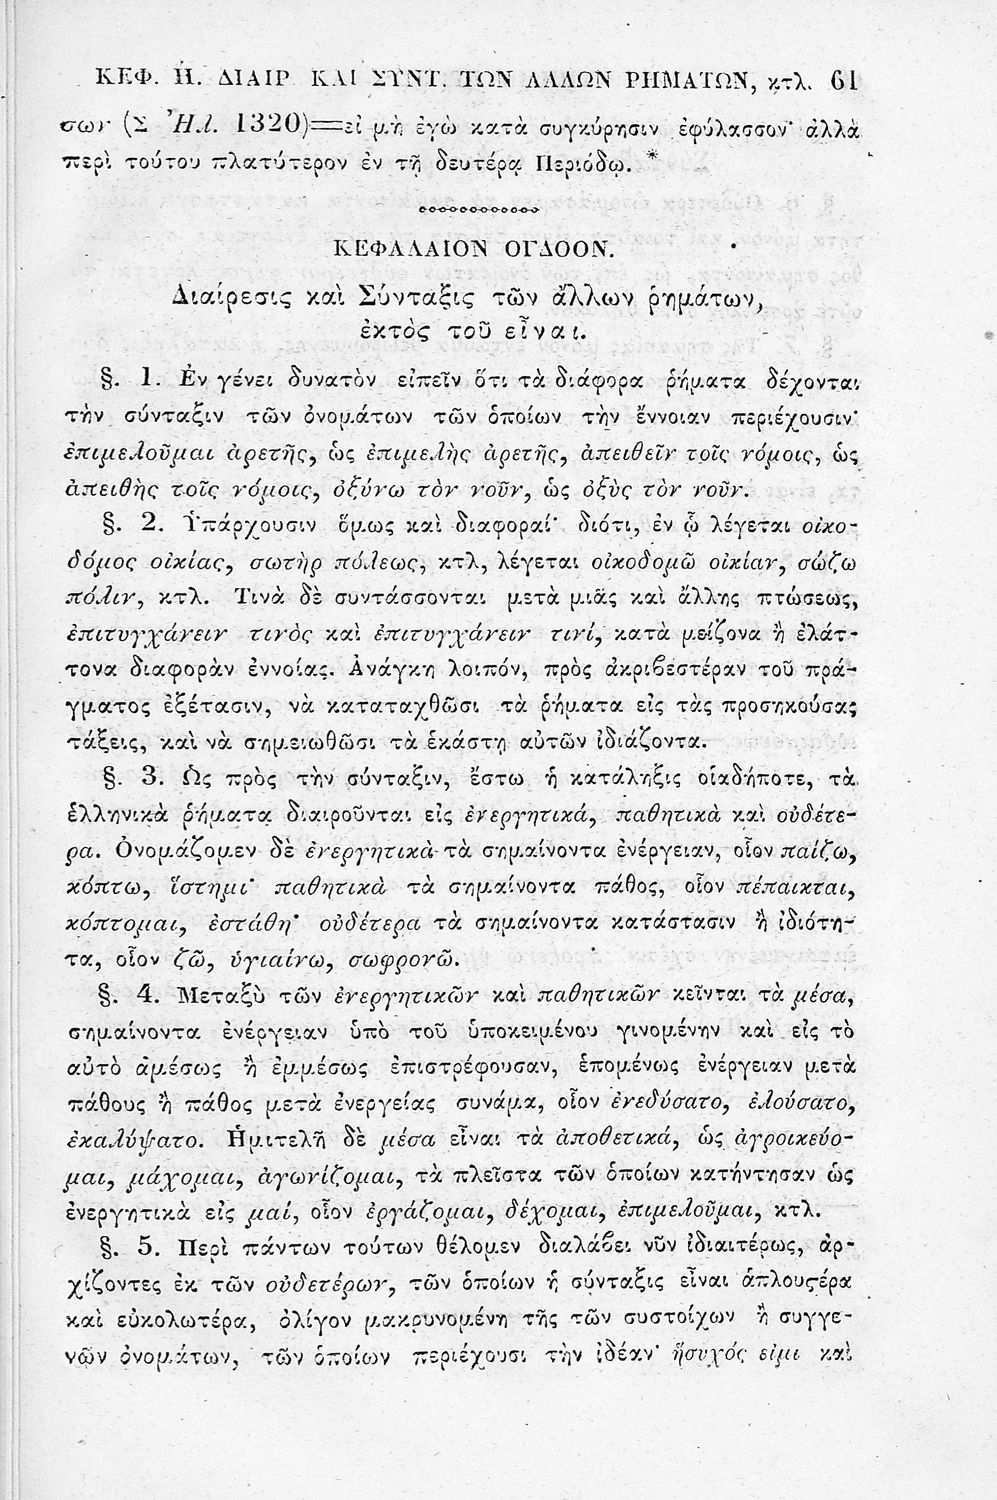 ΚΕΦ. Ή. ΔΙΑΙΡ ΚΑΙ ΣΥΝΤ. ΤΩΝ ΑΛΛΩΝ ΡΗΜΑΤΩΝ, κτλ. 61
σων (Σ Ἠλ. 1320)=εἰ μὴ ἐγὼ κατὰ συγκύρησιν ἐφύλασσον· ἀλλὰ
περὶ τούτου πλατύτερον ἐν τῇ δευτέρᾳ Περιόδῳ. *
ΚΕΦΑΛΑΙΟΝ ΟΓΔΟΟΝ.
Διαίρεσις καὶ Σύνταξις τῶν ἄλλων ῥημάτων,
ἐκτὸς τοῦ εἶναι.
§. 1. Ἐν γένει δυνατὸν εἰπεῖν ὅτι τὰ διάφορα ῥήματα δέχονται
τὴν σύνταξιν τῶν ὀνομάτων τῶν ὁποίων τὴν ἔννοιαν περιέχουσιν·
ἐπιμελοῦμαι ἀρετῆς, ὡς ἐπιμελὴς ἀρετῆς, ἀπειθεῖν τοῖς νόμοις, ὡς
ἀπειθὴς τοῖς νόμοις, ὀξύνω τὸν νοῦν, ὡς ὀξὺς τὸν νοῦν.
§. 2. Ὑπάρχουσιν ὅμως καὶ διαφοραί· διότι, ἐν ᾧ λέγεται οἰκο-
δόμος οἰκίας, σωτὴρ πόλεως, κτλ, λέγεται οἰκοδομῶ οἰκίαν, σώζω
πόλιν, κτλ. Τινὰ δὲ συντάσσονται μετὰ μιᾶς καὶ ἄλλης πτώσεως,
ἐπιτυγχάνειν τινὸς καὶ ἐπιτυγχάνειν τινί, κατὰ μείζονα ἢ ἐλάτ-
τονα διαφορὰν ἐννοίας. Ἀνάγκη λοιπόν, πρὸς ἀκριβεστέραν τοῦ πρά-
γματος ἐξέτασιν, νὰ καταταχθῶσι τὰ ῥήματα εἰς τὰς προσηκούσας
τάξεις, καὶ νὰ σημειωθῶσι τὰ ἑκάστῃ αὐτῶν ἰδιάζοντα.
§. 3. Ὡς πρὸς τὴν σύνταξιν, ἔστω ἡ κατάληξις οἱαδήποτε, τὰ
ἑλληνικὰ ῥήματα διαιροῦνται εἰς ἐνεργητικά, παθητικὰ καὶ οὐδέτε-
ρα. Ὀνομάζομεν δὲ ἐνεργητικὰ τὰ σημαίνοντα ἐνέργειαν, οἷον παίζω,
κόπτω, ἵστημι· παθητικὰ τὰ σημαίνοντα πάθος, οἷον πέπαικται,
κόπτομαι, ἐστάθη· οὐδέτερα τὰ σημαίνοντα κατάστασιν ἢ ἰδιότη-
τα, οἷον ζῶ, ὑγιαίνω, σωφρονῶ.
§. 4. Μεταξὺ τῶν ἐνεργητικῶν καὶ παθητικῶν κεῖνται τὰ μέσα,
σημαίνοντα ἐνέργειαν ὑπὸ τοῦ ὑποκειμένου γινομένην καὶ εἰς τὸ
αὐτὸ ἀμέσως ἢ ἐμμέσως ἐπιστρέφουσαν, ἑπομένως ἐνέργειαν μετὰ
πάθους ἢ πάθος μετὰ ἐνεργείας συνάμα, οἷον ἐνεδύσατο, ἐλούσατο,
ἐκαλύψατο. Ἡμιτελῆ δὲ μέσα εἶναι τὰ ἀποθετικά, ὡς ἀγροικεύο-
μαι, μάχομαι, ἀγωνίζομαι, τὰ πλεῖστα τῶν ὁποίων κατήντησαν ὡς
ἐνεργητικὰ εἰς μαί, οἷον ἐργάζομαι, δέχομαι, ἐπιμελοῦμαι, κτλ.
§. 5. Περὶ πάντων τούτων θέλομεν διαλάβει νῦν ἰδιαιτέρως, ἀρ-
χίζοντες ἐκ τῶν οὐδετέρων, τῶν ὁποίων ἡ σύνταξις εἶναι ἁπλουστέρα
καὶ εὐκολωτέρα, ὀλίγον μακρυνομένη τῆς τῶν συστοίχων ἢ συγγε-
νῶν ὀνομάτων, τῶν ὁποίων περιέχουσι τὴν ἰδέαν· ἥσυχός εἰμι καὶ